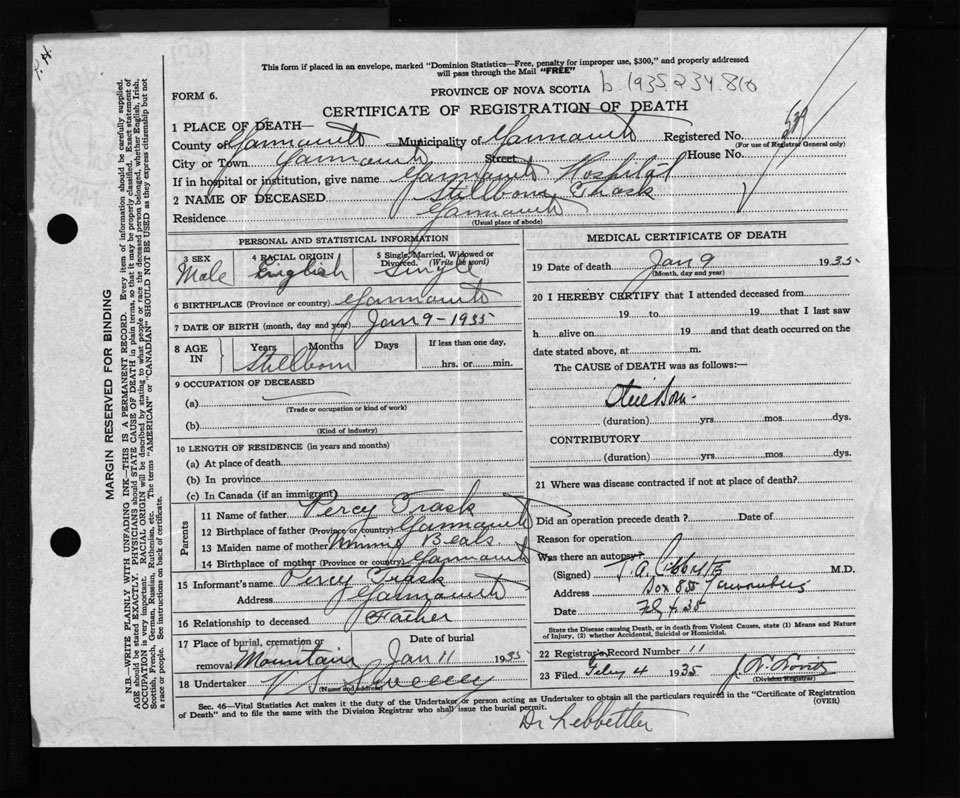 P. H.
This form if placed in an envelope, marked "Dominion Statistics—Free, penalty for improper use, $300," and properly addressed
will pass through the Mail "FREE"
PROVINCE OF NOVA SCOTIA b. 1935 234 810
FORM 6.
CERTIFICATE OF REGISTRATION OF DEATH
1 PLACE OF DEATH—
County of Yarmouth Municipality of Yarmouth Registered No.
(For use of Registrar General only)
City or Town Yarmouth Street House No.
If in hospital or institution, give name Yarmouth Hospital
2 NAME OF DECEASED Stillborn Trask
Residence Yarmouth
(Usual place of abode)
PERSONAL AND STATISTICAL INFORMATION
3 SEX 4 RACIAL ORIGIN 5 Single, Married, Widowed or
Divorced. (Write the word)
Male English Single
6 BIRTHPLACE (Province or country) Yarmouth
7 DATE OF BIRTH (month, day and year) Jan 9 - 1935
8 AGE IN Years Months Days If less than one day,
Stillborn hrs. or min.
9 OCCUPATION OF DECEASED
(a)
(Trade or occupation or kind of work)
(b)
(Kind of industry)
10 LENGTH OF RESIDENCE (in years and months)
(a) At place of death
(b) In province
(c) In Canada (if an immigrant)
Parents
11 Name of father Percy Trask
12 Birthplace of father (Province or country) Yarmouth
13 Maiden name of mother Minnie Beals
14 Birthplace of mother (Province or country) Yarmouth
15 Informant's name Percy Trask
Address Yarmouth
16 Relationship to deceased Father
17 Place of burial, cremation or Date of burial
removal Mountain Jan 11 1935
18 Undertaker V S Sweeney
(Name and address)
MEDICAL CERTIFICATE OF DEATH
19 Date of death Jan 9 1935
(Month, day and year)
20 I HEREBY CERTIFY that I attended deceased from
19 to 19 that I last saw
h alive on 19 and that death occurred on the
date stated above, at m.
The CAUSE of DEATH was as follows:—
Still Born
(duration) yrs. mos. dys.
CONTRIBUTORY
(duration) yrs. mos. dys.
21 Where was disease contracted if not at place of death?
Did an operation precede death? Date of
Reason for operation
Was there an autopsy
(Signed) T. A. M.D.
Address Box 855 Yarmouth
Date Feb 4 35
State the Disease causing Death, or in death from Violent Causes, state (1) Means and Nature
of Injury, (2) whether Accidental, Suicidal or Homicidal.
22 Registrar's Record Number 11
23 Filed Feby 4 1935
(Division Registrar)
Sec. 46—Vital Statistics Act makes it the duty of the Undertaker or person acting as Undertaker to obtain all the particulars required in the "Certificate of Registration
of Death" and to file the same with the Division Registrar who shall issue the burial permit. (OVER)
Dr Lebbetter
MARGIN RESERVED FOR BINDING
N.B.—WRITE PLAINLY WITH UNFADING INK—THIS IS A PERMANENT RECORD. Every item of information should be carefully supplied.
AGE should be stated EXACTLY. PHYSICIANS should STATE CAUSE OF DEATH in plain terms, so that it may be properly classified. Exact statement of
OCCUPATION is very important. RACIAL ORIGIN will be described by stating to what people or race the deceased person belonged, whether English, Irish,
Scottish, French, German, Russian, Ruthenian, etc. The terms "AMERICAN" or "CANADIAN" SHOULD NOT BE USED as they express citizenship but not
a race or people. See instructions on back of certificate.